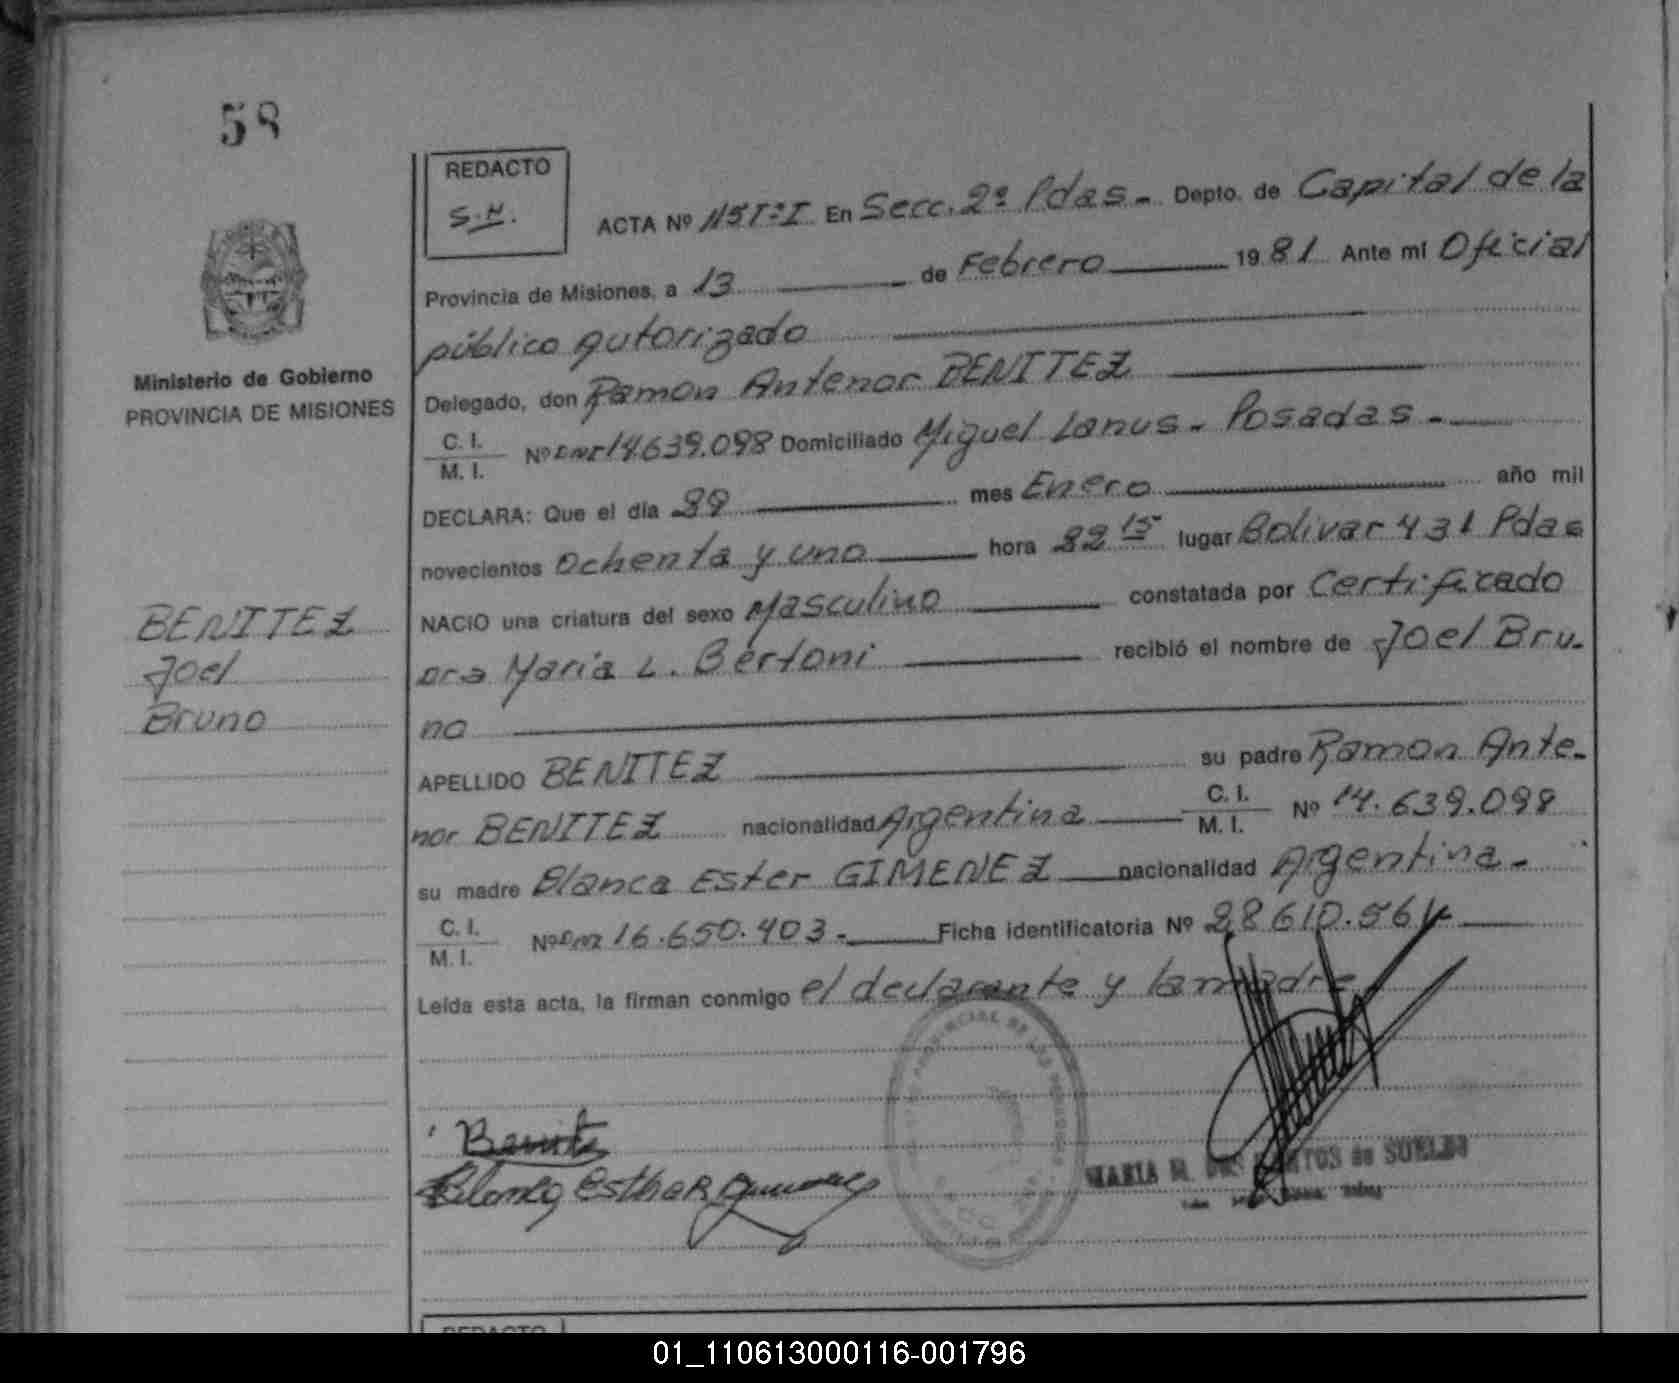 58
REDACTO
S.H.
ACTA Nº 115Tº I En Secc. 2ª Pdas - Depto. de Capital de la
Provincia de Misiones, a 13 de Febrero 1981 Ante mí Oficial
público autorizado
Delegado, don Ramon Antenor BENITEZ
C. I.
M. I. Nº DNI 14.639.098 Domiciliado Miguel Lanus - Posadas -
DECLARA: Que el día 29 mes Enero año mil
novecientos Ochenta y uno hora 22 15 lugar Bolivar 431 Pdas
NACIO una criatura del sexo Masculino constatada por Certificado
Dra Maria L. Bertoni recibió el nombre de Joel Bru-
no
APELLIDO BENITEZ su padre Ramon Ante-
nor BENITEZ nacionalidad Argentina C. I. M. I. Nº 14.639.098
su madre Blanca Ester GIMENEZ nacionalidad Argentina -
C. I.
M. I. Nº DNI 16.650.403 - Ficha identificatoria Nº 28610.561
Leída esta acta, la firman conmigo el declarante y la madre
Ministerio de Gobierno
PROVINCIA DE MISIONES
BENITEZ
Joel
Bruno
Benitez
Blanca Esther Gimenez
MARIA M. de SUELDO
REDACTO
01_110613000116-001796